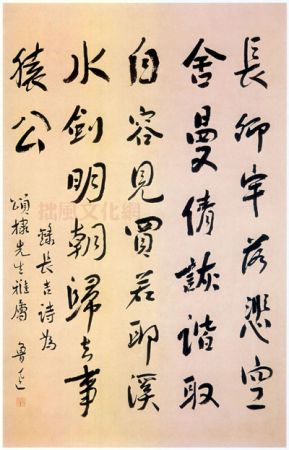 長卿牢落悲空
舍曼倩詼諧取
自容見買若耶溪
水劍明朝歸去事
猿公
錄長吉詩為
頌棣先生雅屬 魯迅
拙風文化網